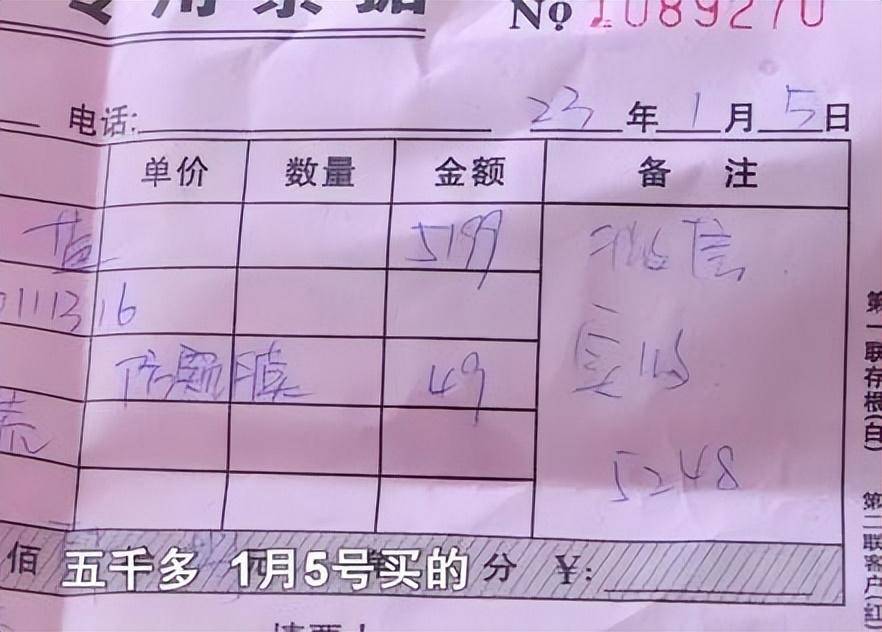 专用票据 No 1089270
电话: 23年1月5日
单价 数量 金额 备 注
蓝 5199 微信
011131 16
实收
膜 49
5248
佰 元 分 ¥:
五千多 1月5号买的
第一联存根(白)
第二联客户(红)